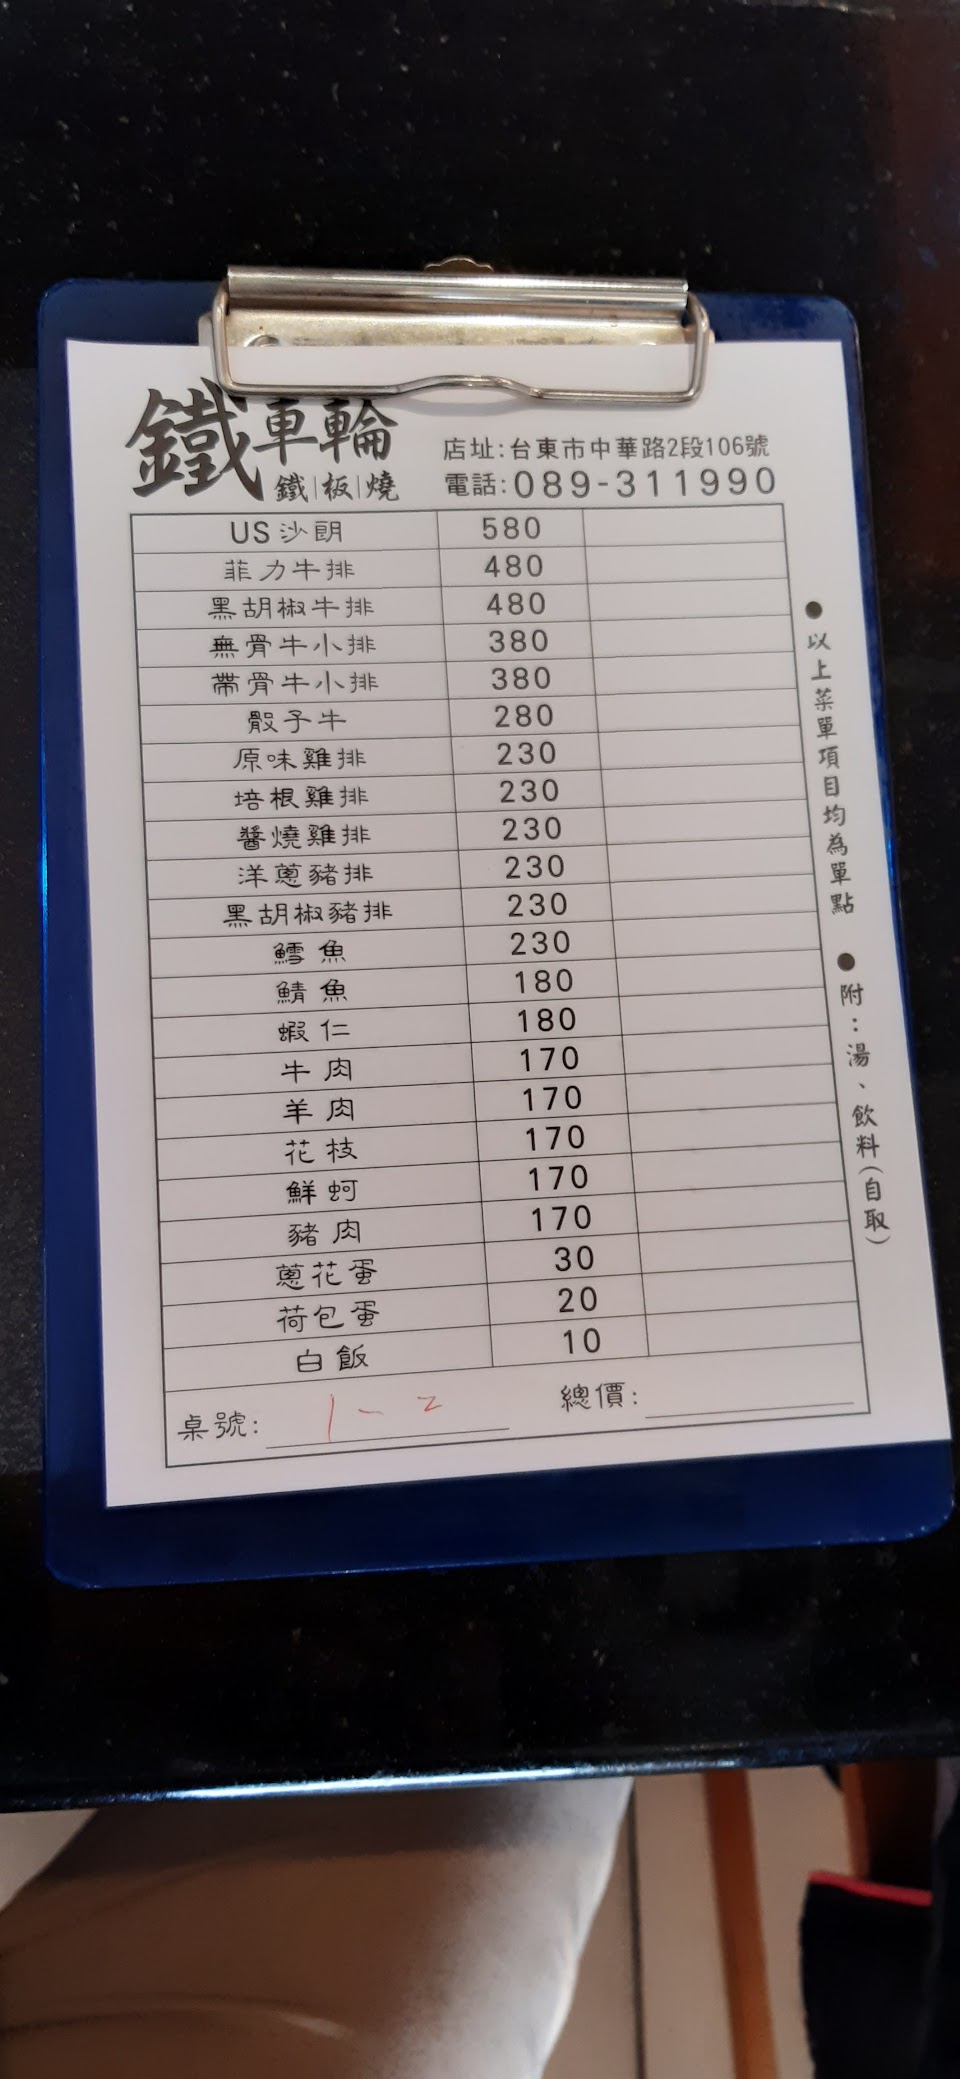 鐵車輪
鐵|板|燒
店址:台東市中華路2段106號
電話:089-311990
US沙朗 580
菲力牛排 480
黑胡椒牛排 480
無骨牛小排 380
帶骨牛小排 380
骰子牛 280
原味雞排 230
培根雞排 230
醬燒雞排 230
洋蔥豬排 230
黑胡椒豬排 230
鱈魚 230
鯖魚 180
蝦仁 180
牛肉 170
羊肉 170
花枝 170
鮮蚵 170
豬肉 170
蔥花蛋 30
荷包蛋 20
白飯 10
桌號: 1-2 總價:
●以上菜單項目均為單點 ●附:湯、飲料(自取)